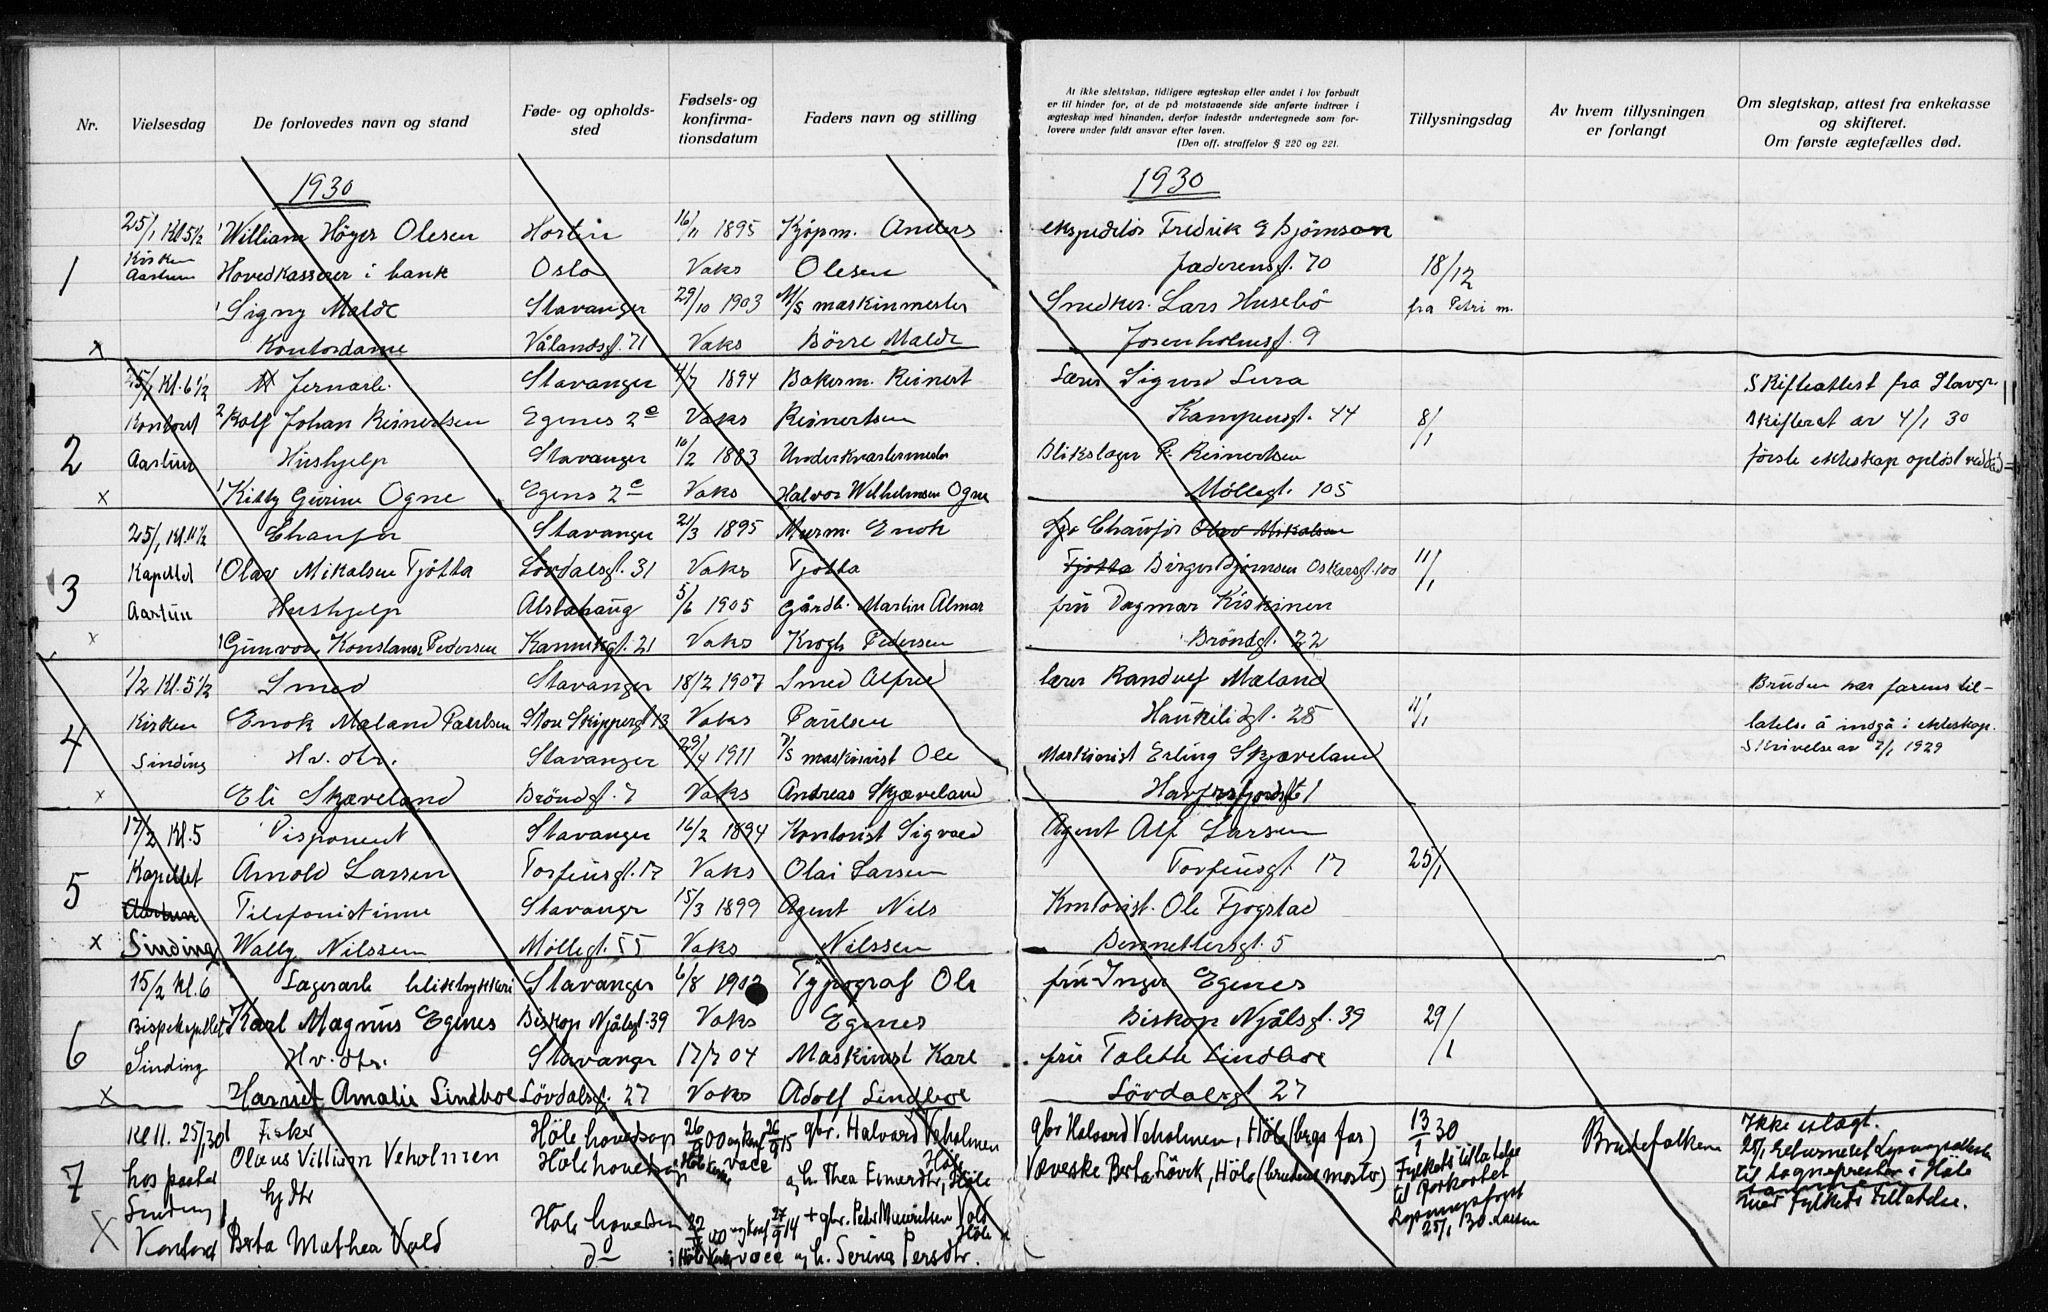 Nr.
Vielsesdag
De forlovedes navn og stand
Føde- og opholds-
sted
Fødsels- og
konfirma-
tionsdatum
Faders navn og stilling
1930
25/1 Kl 5 1/2 William Höyer Olesen Horten 16/11 1895 Kjøpm. Anders
1 Kirken
Aartun Hovedkasserer i bank Oslo Vaks Olesen
Signy Malde Stavanger 29/10 1903 M/S maskinmester
x Kontordame Vålandsgt. 71 Vaks Börre Malde
25/1 Kl. 6 1/2 Jernarb. Stavanger 4/7 1894 Bakerm. Reinert
2 Kontoret 2 Rolf Johan Reinertsen Egenes 2e Vaks Reinertsen
Aartun Hushjelp Stavanger 10/2 1883 Underkvartermester
x Kitty Gurine Ogne Egenes 2e Vaks Halvor Wilhelmsen Ogne
25/1 Kl. 11 1/2 Chaufør Stavanger 21/3 1895 Murm. Enok
3 Kapellet Olav Mikalsen Tjötta Lövdalsgt. 31 Vaks Tjötta
Aartun Hushjelp Alstahaug 5/6 1905 Gårdb. Martin Almar
x Gunvor Konstanse Pedersen Kannikgt. 21 Vaks Krogh Pedersen
1/2 Kl. 5 1/2 Smed Stavanger 18/2 1907 Smed Alfred
4 Kirken Enok Mæland Paulsen Store Skippergt 13 Vaks Paulsen
Sinding Hv. dtr. Stavanger 29/4 1911 D/S maskinist Ole
x Eli Skjæveland Bröndgt. 7 Vaks Andreas Skjæveland
17/2 Kl. 5 Disponent Stavanger 16/2 1894 Kontorist Sigvald
5 Kapellet Arnold Larsen Torfeusgt. 17 Vaks Olai Larsen
Aartun Telefonistinne Stavanger 15/3 1899 Agent Nils
x Sinding Wally Nilssen Möllegt. 55 Vaks Nilssen
15/2 Kl. 6 Lagerarb. bliktrykkeri Stavanger 6/8 1902 Typograf Ole
6 Bispekapellet Karl Magnus Egenes Biskop Njålsgt. 39 Vaks Egenes
Sinding Hv. dtr. Stavanger 17/7 04 Maskinist Karl
x Harriet Amalie Lindboe Lövdalsgt. 27 Vaks Adolf Lindboe
Kl 11. 25/1 30 Fisker Höle hovedsogn 26/ 00 og konf 26/9 15 gbr. Halvard Veholmen
7 hos pastor Olaus Villiam Veholmen Höle hovedsogn vacc Höle
Sinding Gjdtr og h. Thea Einardtr, Höle
Höle hovedsogn 22/ 00 og konf 27/9 14 + gbr. Peder Mauritsen Vold
X Kontoret Berta Mathea Vold do i Höle vacc og h. Serina Persdtr. Höle
At ikke slektskap, tidligere ægteskap eller andet i lov forbudt
er til hinder for, at de på motstaaende side anførte indtrær i
ægteskap med hinanden, derfor indestår undertegnede som for-
lovere under fuldt ansvar efter loven.
(Den off. straffelov § 220 og 221.
Tillysningsdag
Av hvem tillysningen
er forlangt
Om slegtskap, attest fra enkekasse
og skifteret.
Om første ægtefælles død.
1930
ekspeditör Fredrik G Bjørnson
Jæderensgt. 70 18/12
Snedker. Lars Husebö fra Petri m.
Josenholmsgt. 9
Lærer Sigurd Lura Skifteattest fra Stavgr.
Kampensgt. 44 8/1 Skifteret av 4/1 30
Blikslager P. Reinertsen første ekteskap opløst ved död
Möllegt. 105
Chauför Olav Mikalsen
Tjötta Birger Bjørnsen Oskarsgt. 100 11/1
fru Dagmar Kiskinen
Bröndgt. 22
lærer Randulf Mæland Bruden har farens til-
Haukeligt. 28 11/1 latelse å indgå i ekteskap.
Maskinist Erling Skjæveland Skrivelse av 7/1 1929
Havfrsfjordsgt 1
Agent Alf Larsen
Torfeusgt. 17 25/1
Kontorist. Ole Tjogstad
Bennettersgt. 5
fru Inger Egenes
Biskop Njålsgt. 39 29/1
fru Tolette Lindboe
Lövdalsgt 27
gbr Halvard Veholmen, Höle (brgs far) 13/1 30 Brudefolkene Ikke i slegt.
Væverske Berta Lövik, Höle (brudens moster) Fylkets tillatelse 25/1 returneret Lysningsattesten
til forkortet til sognepresten i Höle
Lysningsfrist med Fylkets tillatelse.
25/1 30. Larsen